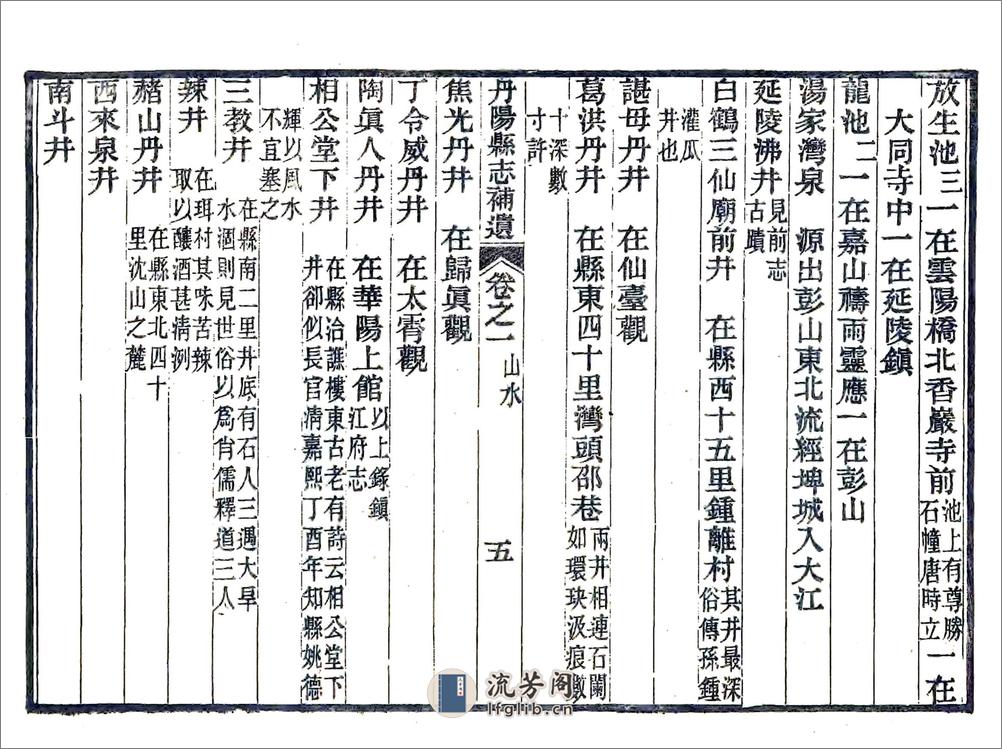 放生池三一在雲陽橋北香巖寺前池上有尊勝石幢唐時立一在
大同寺中一在延陵鎮
龍池二一在嘉山禱雨靈應一在彭山
湯家灣泉 源出彭山東北流經埤城入大江
延陵沸井見前志古蹟
白鶴三仙廟前井 在縣西十五里鍾離村其井最深俗傳孫鍾
灌瓜井也
諶母丹井 在仙臺觀
葛洪丹井 在縣東四十里灣頭邵巷兩井相連石闌如環玦汲痕數
十深數寸許
丹陽縣志補遺 卷之一 山水 五
焦光丹井 在歸眞觀
丁令威丹井 在太霄觀
陶眞人丹井 在華陽上館以上錄鎮江府志
相公堂下井 在縣治譙樓東古老有詩云相公堂下井卻似長官清嘉熙丁酉年知縣姚德
輝以風水不宜塞之
三教井 在縣南二里井底有石人三遇大旱水涸則見世俗以爲肖儒釋道三人
辣井 在珥村其味苦辣取以釀酒甚清冽
赭山丹井 在縣東北四十里沈山之麓
西來泉井
南斗井
流芳阁
lfglib.cn